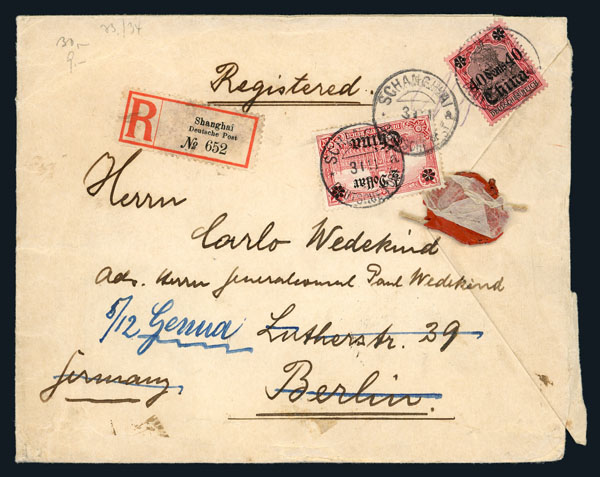 23./34
30.-
9.-
Registered.
R
Shanghai
Deutsche Post
№ 652
SCHANGHAI
40 Cents 40
China
China
Dollar
Herrn
Carlo Wedekind
Ads. Herrn Generalconsul Paul Wedekind
5/12 Genua Lutherstr. 29
Germany Berlin.